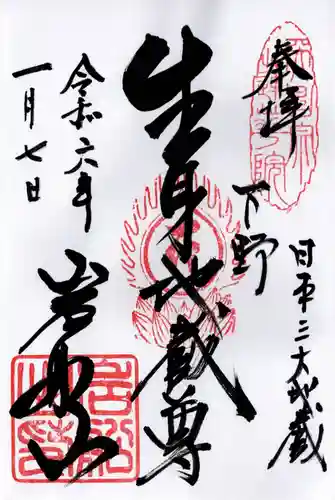 奉拝
日本三大地蔵
下野
生身地蔵尊
岩船山
令和六年
一月七日